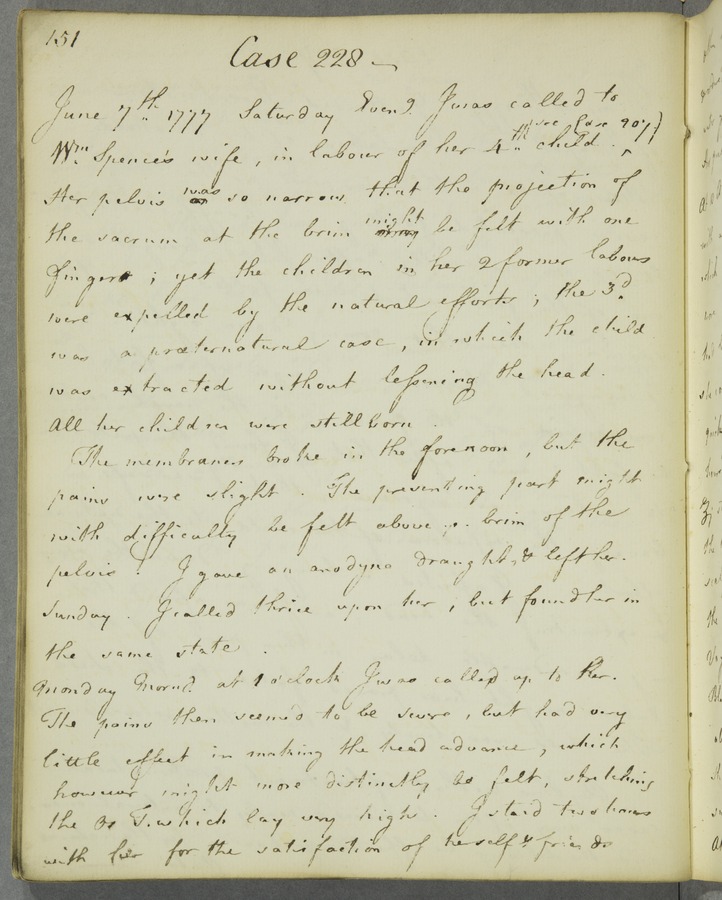 151
Case 228 —
June 7th 1777 Saturday Eveng. I was called to
(see Case 907)
Wm. Spence's wife, in labour of her 4th child.
Her pelvis was so narrow that the projection of
the sacrum at the brim might be felt with one
finger; yet the children in her 2 former labours
were expelled by the natural efforts; the 3d.
was a præternatural case, in which the child
was extracted without lessening the head.
All her children were stillborn.
The membranes broke in the forenoon, but the
pains were slight. The presenting part might
with difficulty be felt above ye. brim of the
pelvis. I gave an anodyne draught, & left her.
Sunday. I called thrice upon her, but found her in
the same state.
Monday Morng. at 1 o'clock I was called up to her.
The pains then seemed to be severe, but had very
little effect in making the head advance, which
however might more distinctly be felt, stretching
the Os T. which lay very high. I staid two hours
with her for the satisfaction of herself & friends